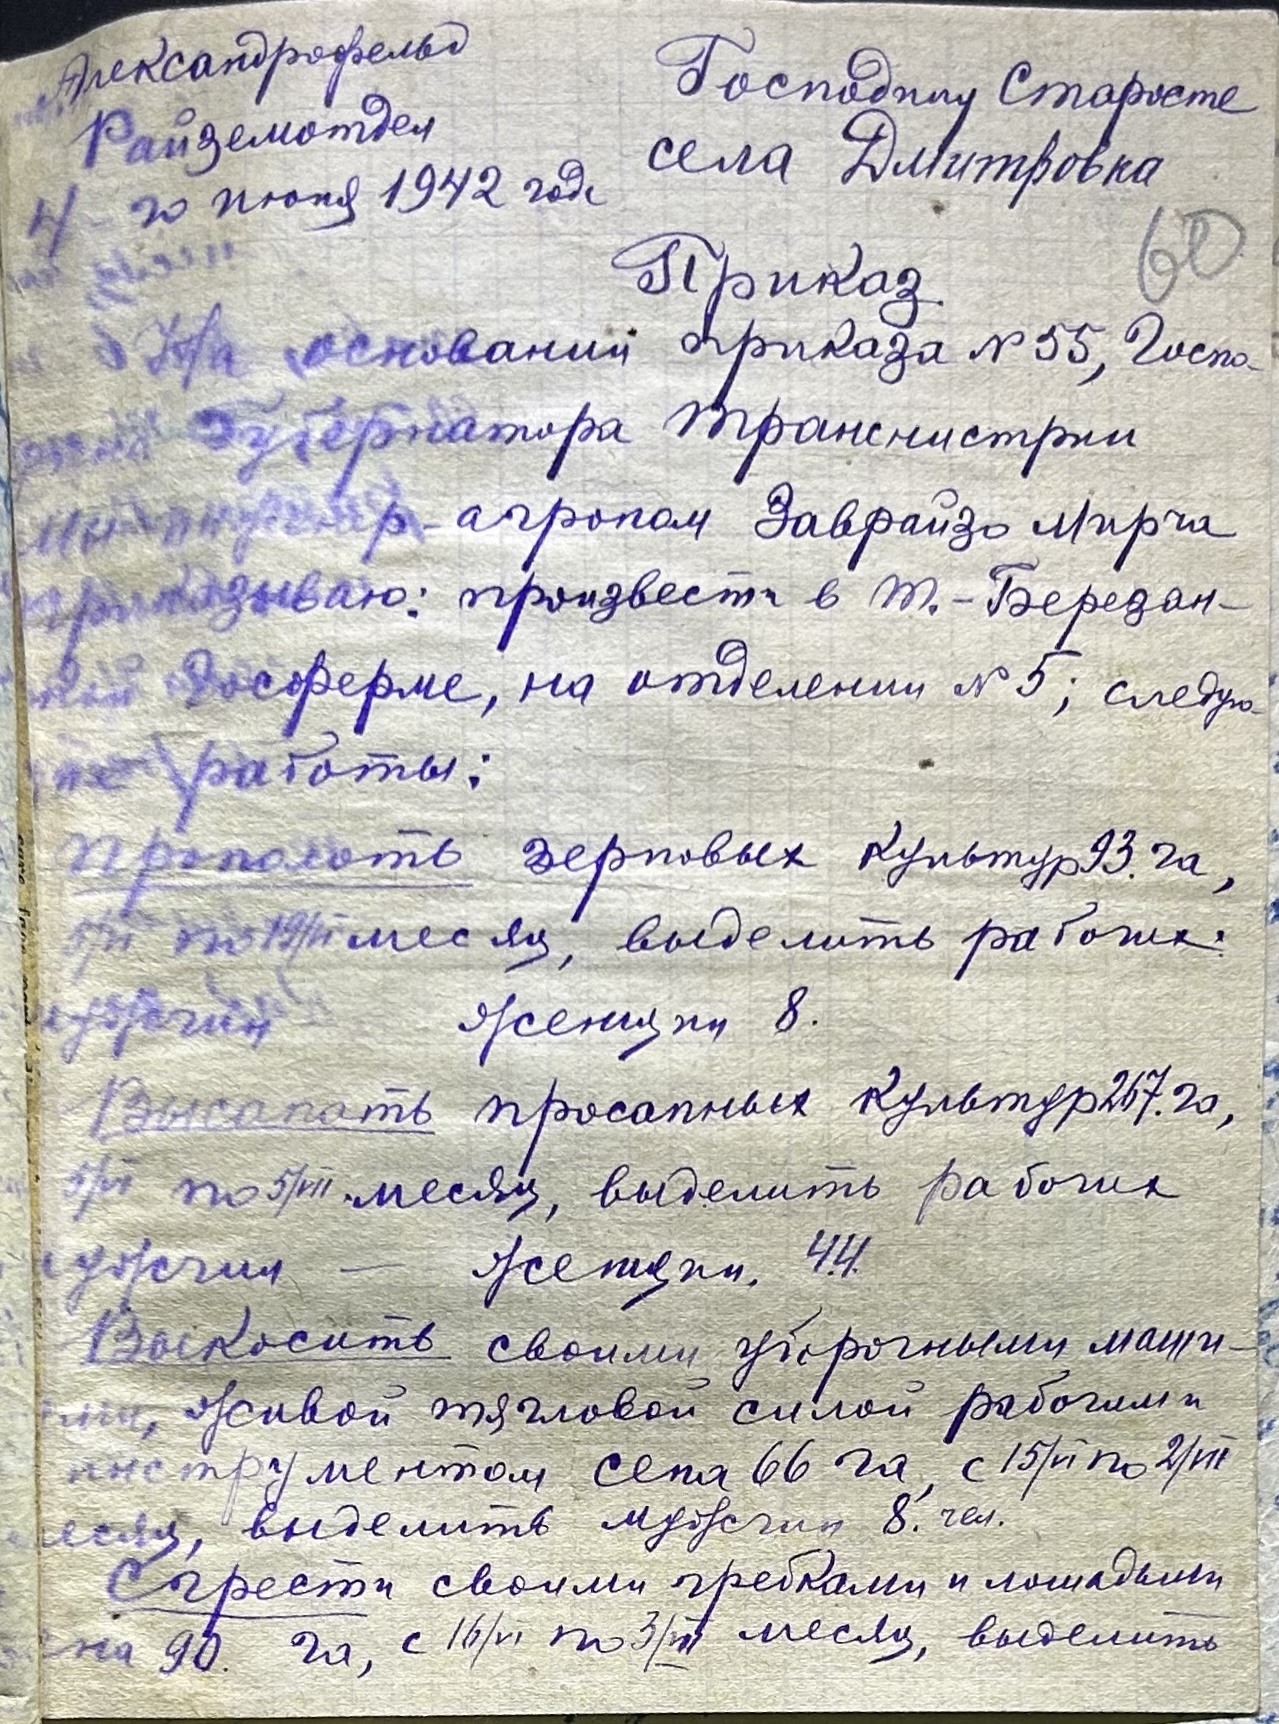 Александрофельд
Райземотдел
4 - го июня 1942 года
Господину Старосте
села Дмитровка
60
Приказ
На основании приказа № 55, Госпо-
Губернатора Транснистрии
р-агроном Мирча
приказываю: произвести в Т.-Березан-
Госферме, на отделении № 5; следую-
работы:
Прополоть зерновых культур 93. га,
5/VI по 19/VI месяц, выделить рабочих:
мужчин женщин 8.
Высапать просапных культур 267. га,
5/VI по 5/VII месяц, выделить рабочих
мужчин — женщин. 44.
Выкосить своими уборочными маши-
живой тягловой силой рабочим и
инструментом сена 66 га, с 15/VI по 2/VII
месяц, выделить мужчин 8. чел.
Сгрести своими гребками и лошадьми
90. га, с 16/VI по 3/VII месяц, выделить